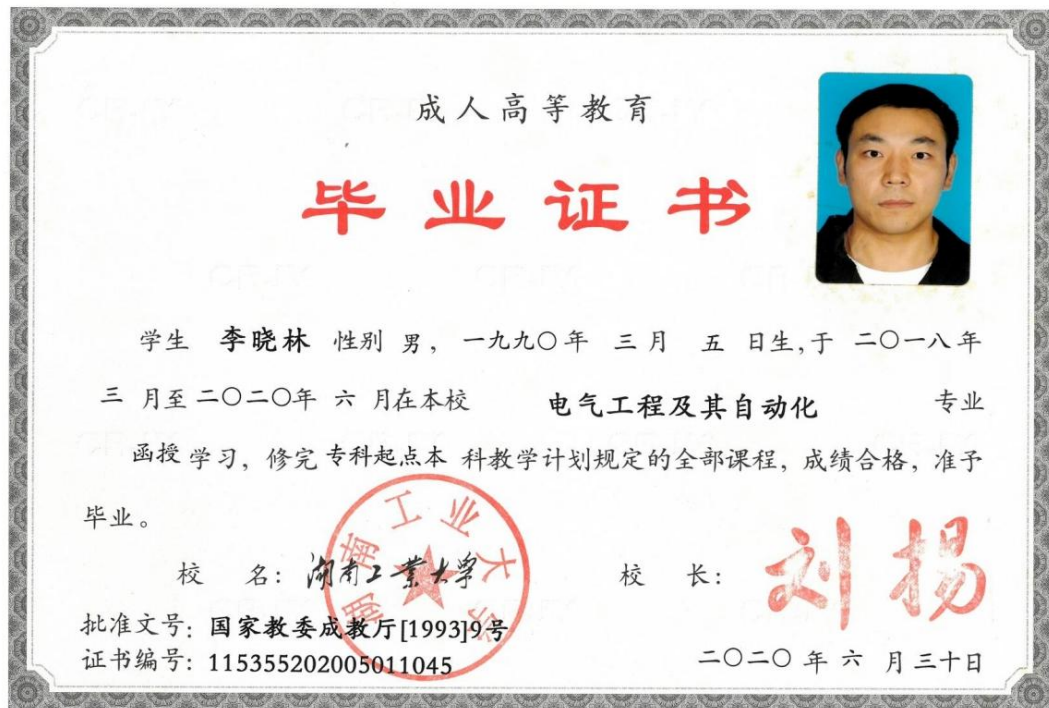 成人高等教育
毕业证书
学生 李晓林 性别 男, 一九九〇年 三月 五 日生,于 二〇一八年
三 月至二〇二〇年 六 月在本校 电气工程及其自动化 专业
函授学习, 修完专科起点本 科教学计划规定的全部课程, 成绩合格, 准予
毕业。
湖南工业大学
校 名: 湖南工業大学 校 长: 刘扬
批准文号: 国家教委成教厅[1993]9号
证书编号: 115355202005011045 二〇二〇年 六 月三十日